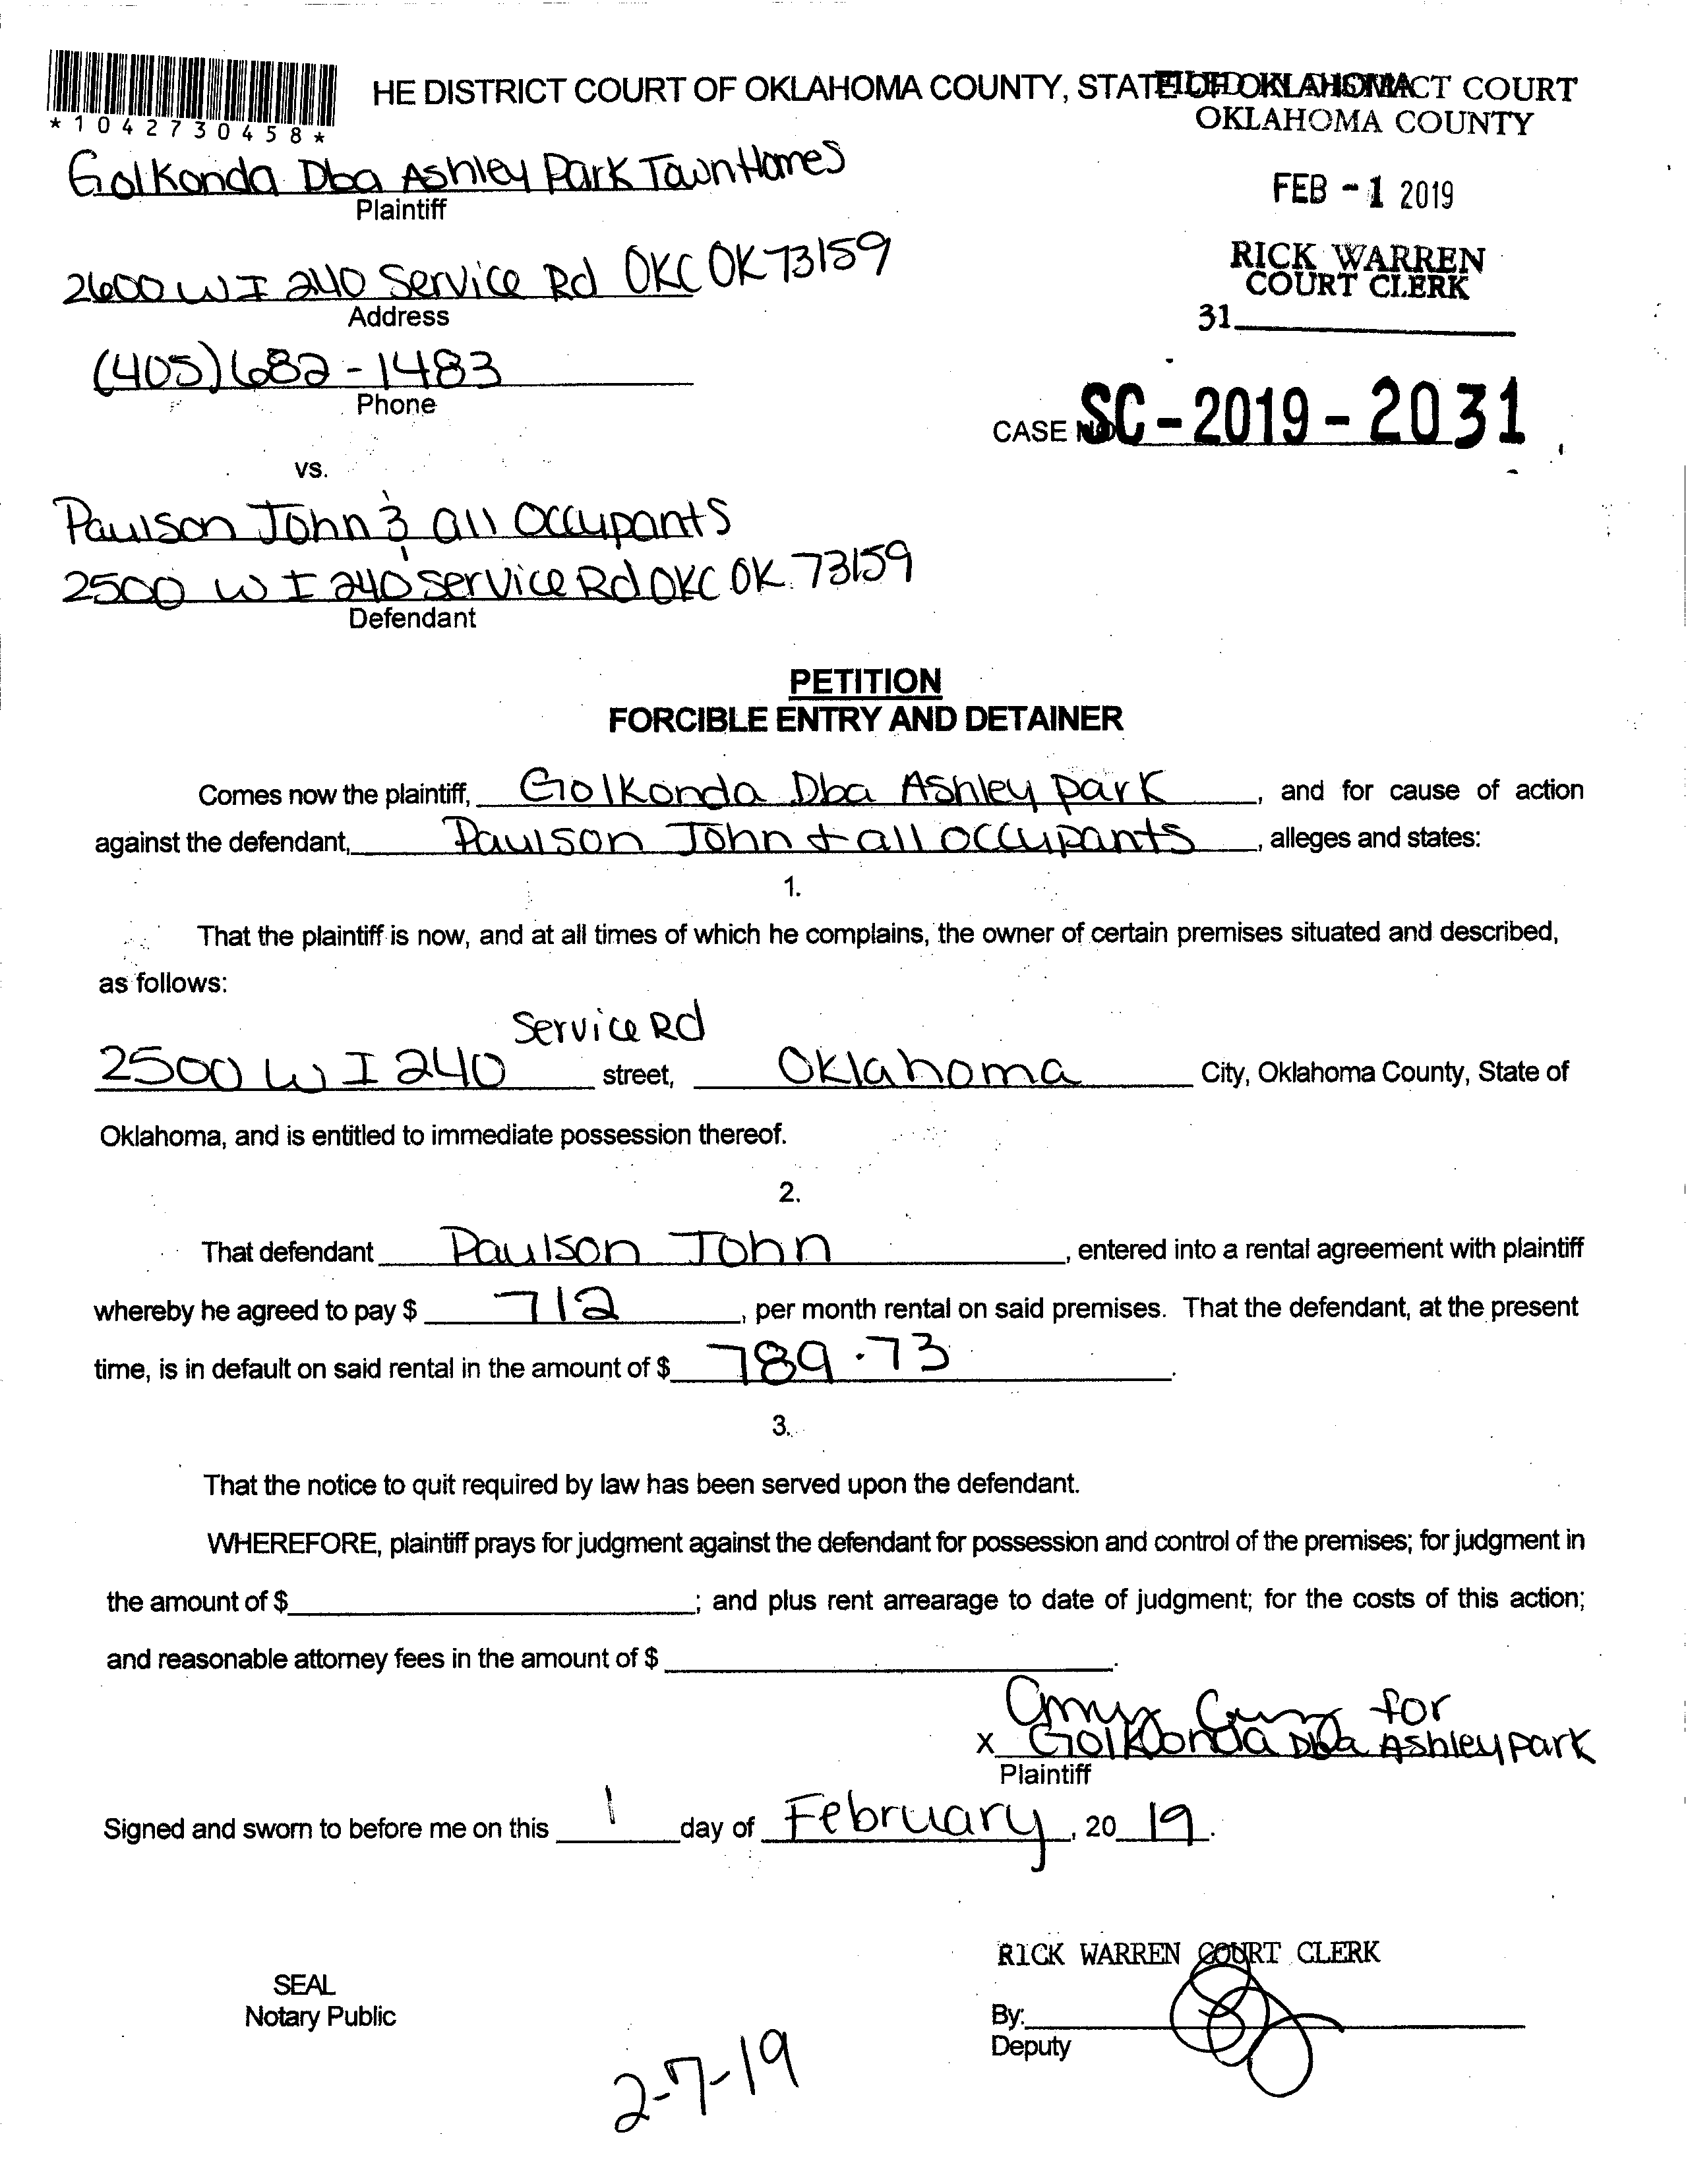 HE DISTRICT COURT OF OKLAHOMA COUNTY, STATE OF OKLAHOMA
FILED DISTRICT COURT
OKLAHOMA COUNTY
*1042730458*
FEB - 1 2019
RICK WARREN
COURT CLERK
31
Golkonda Dba Ashley Park TownHomes
Plaintiff
2600 W I 240 Service Rd OKC OK 73159
Address
(405) 682-1483
Phone
CASE NO SC-2019-2031
vs.
Paulson John & all Occupants
2500 W I 240 Service Rd OKC OK 73159
Defendant
PETITION
FORCIBLE ENTRY AND DETAINER
Comes now the plaintiff, Golkonda Dba Ashley park, and for cause of action
against the defendant, Paulson John + all occupants, alleges and states:
1.
That the plaintiff is now, and at all times of which he complains, the owner of certain premises situated and described,
as follows:
Service Rd
2500 W I 240 street, Oklahoma City, Oklahoma County, State of
Oklahoma, and is entitled to immediate possession thereof.
2.
That defendant Paulson John, entered into a rental agreement with plaintiff
whereby he agreed to pay $ 712, per month rental on said premises. That the defendant, at the present
time, is in default on said rental in the amount of $ 789.73.
3.
That the notice to quit required by law has been served upon the defendant.
WHEREFORE, plaintiff prays for judgment against the defendant for possession and control of the premises; for judgment in
the amount of $ ; and plus rent arrearage to date of judgment; for the costs of this action;
and reasonable attorney fees in the amount of $ .
for
x Golkonda Dba Ashley park
Plaintiff
Signed and sworn to before me on this 1 day of February, 20 19.
RICK WARREN COURT CLERK
SEAL
Notary Public
By:
Deputy
2-7-19